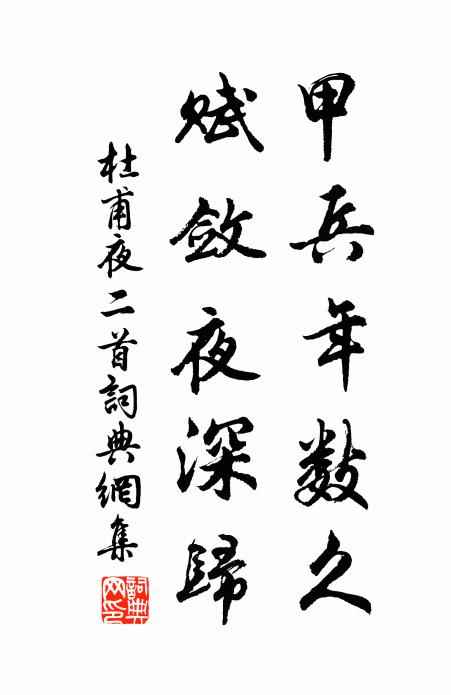 甲兵年數久
賦斂夜深歸
杜甫夜二首詞典網集
詞典網印